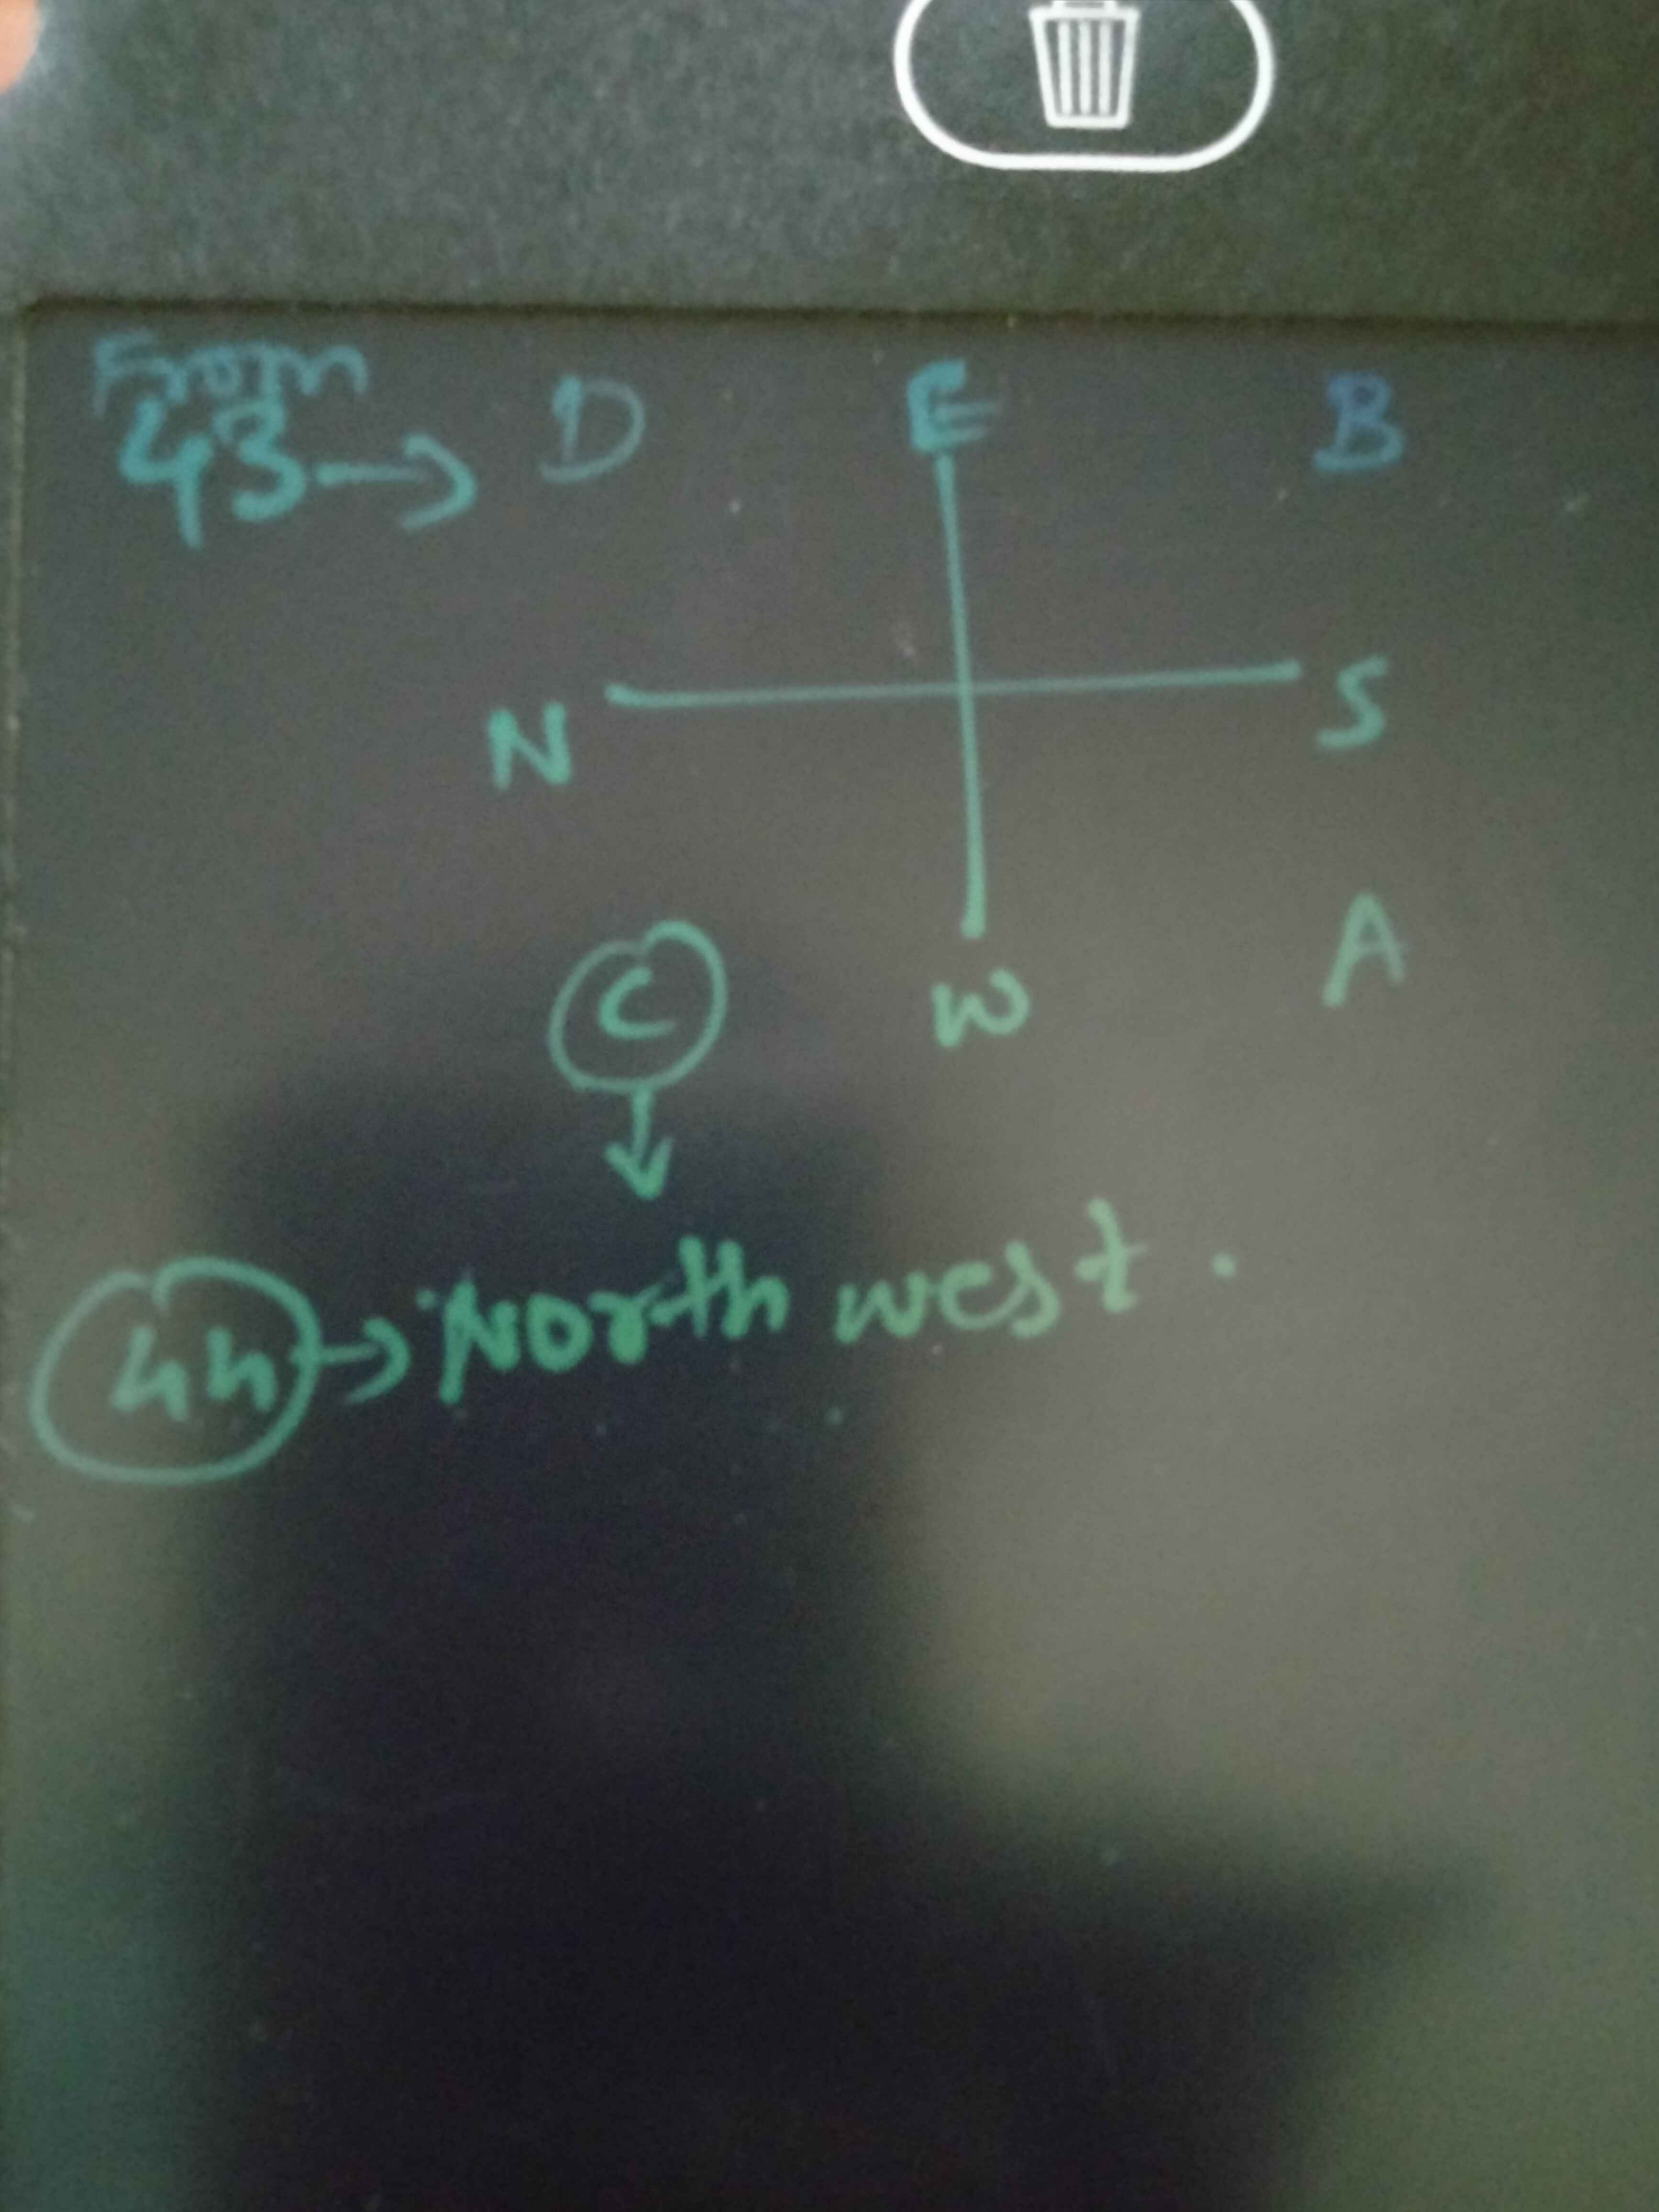 From
43 → D E B
N S
C W A
44 → North west.